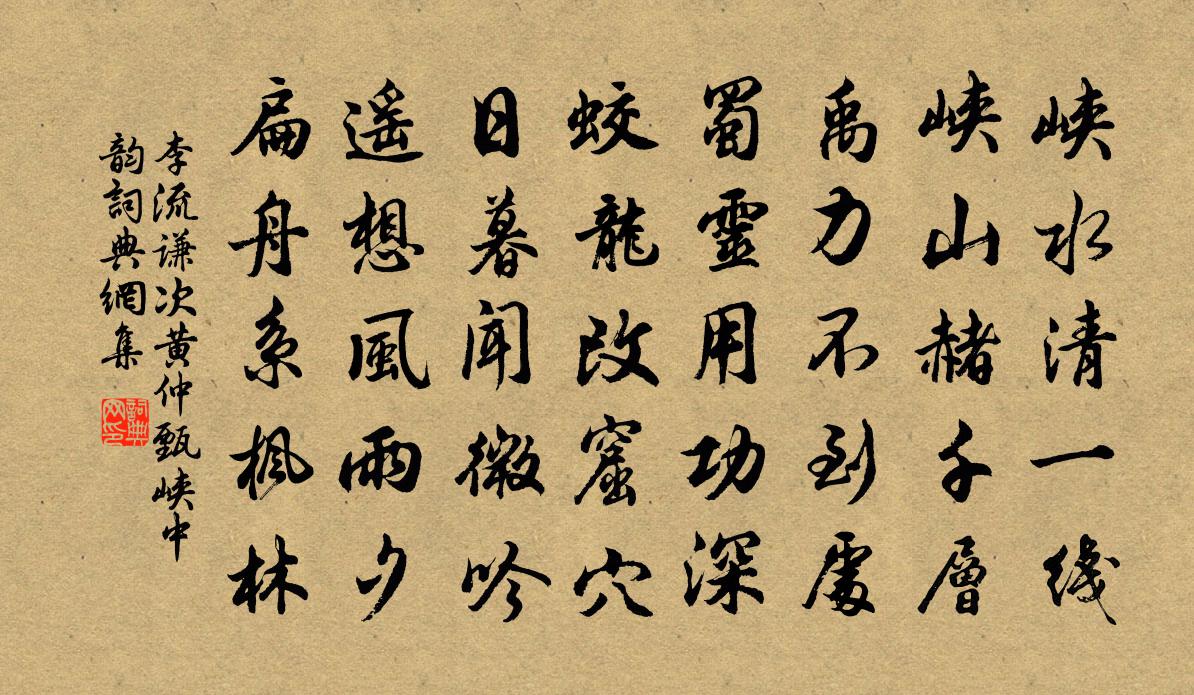 峡水清一线
峡山赭千層
禹力不到處
蜀靈用功深
蛟龍改窟穴
日暮聞微吟
遥想風雨夕
扁舟系楓林
李流谦次黄仲甄峡中
韵詞典網集
詞典网印